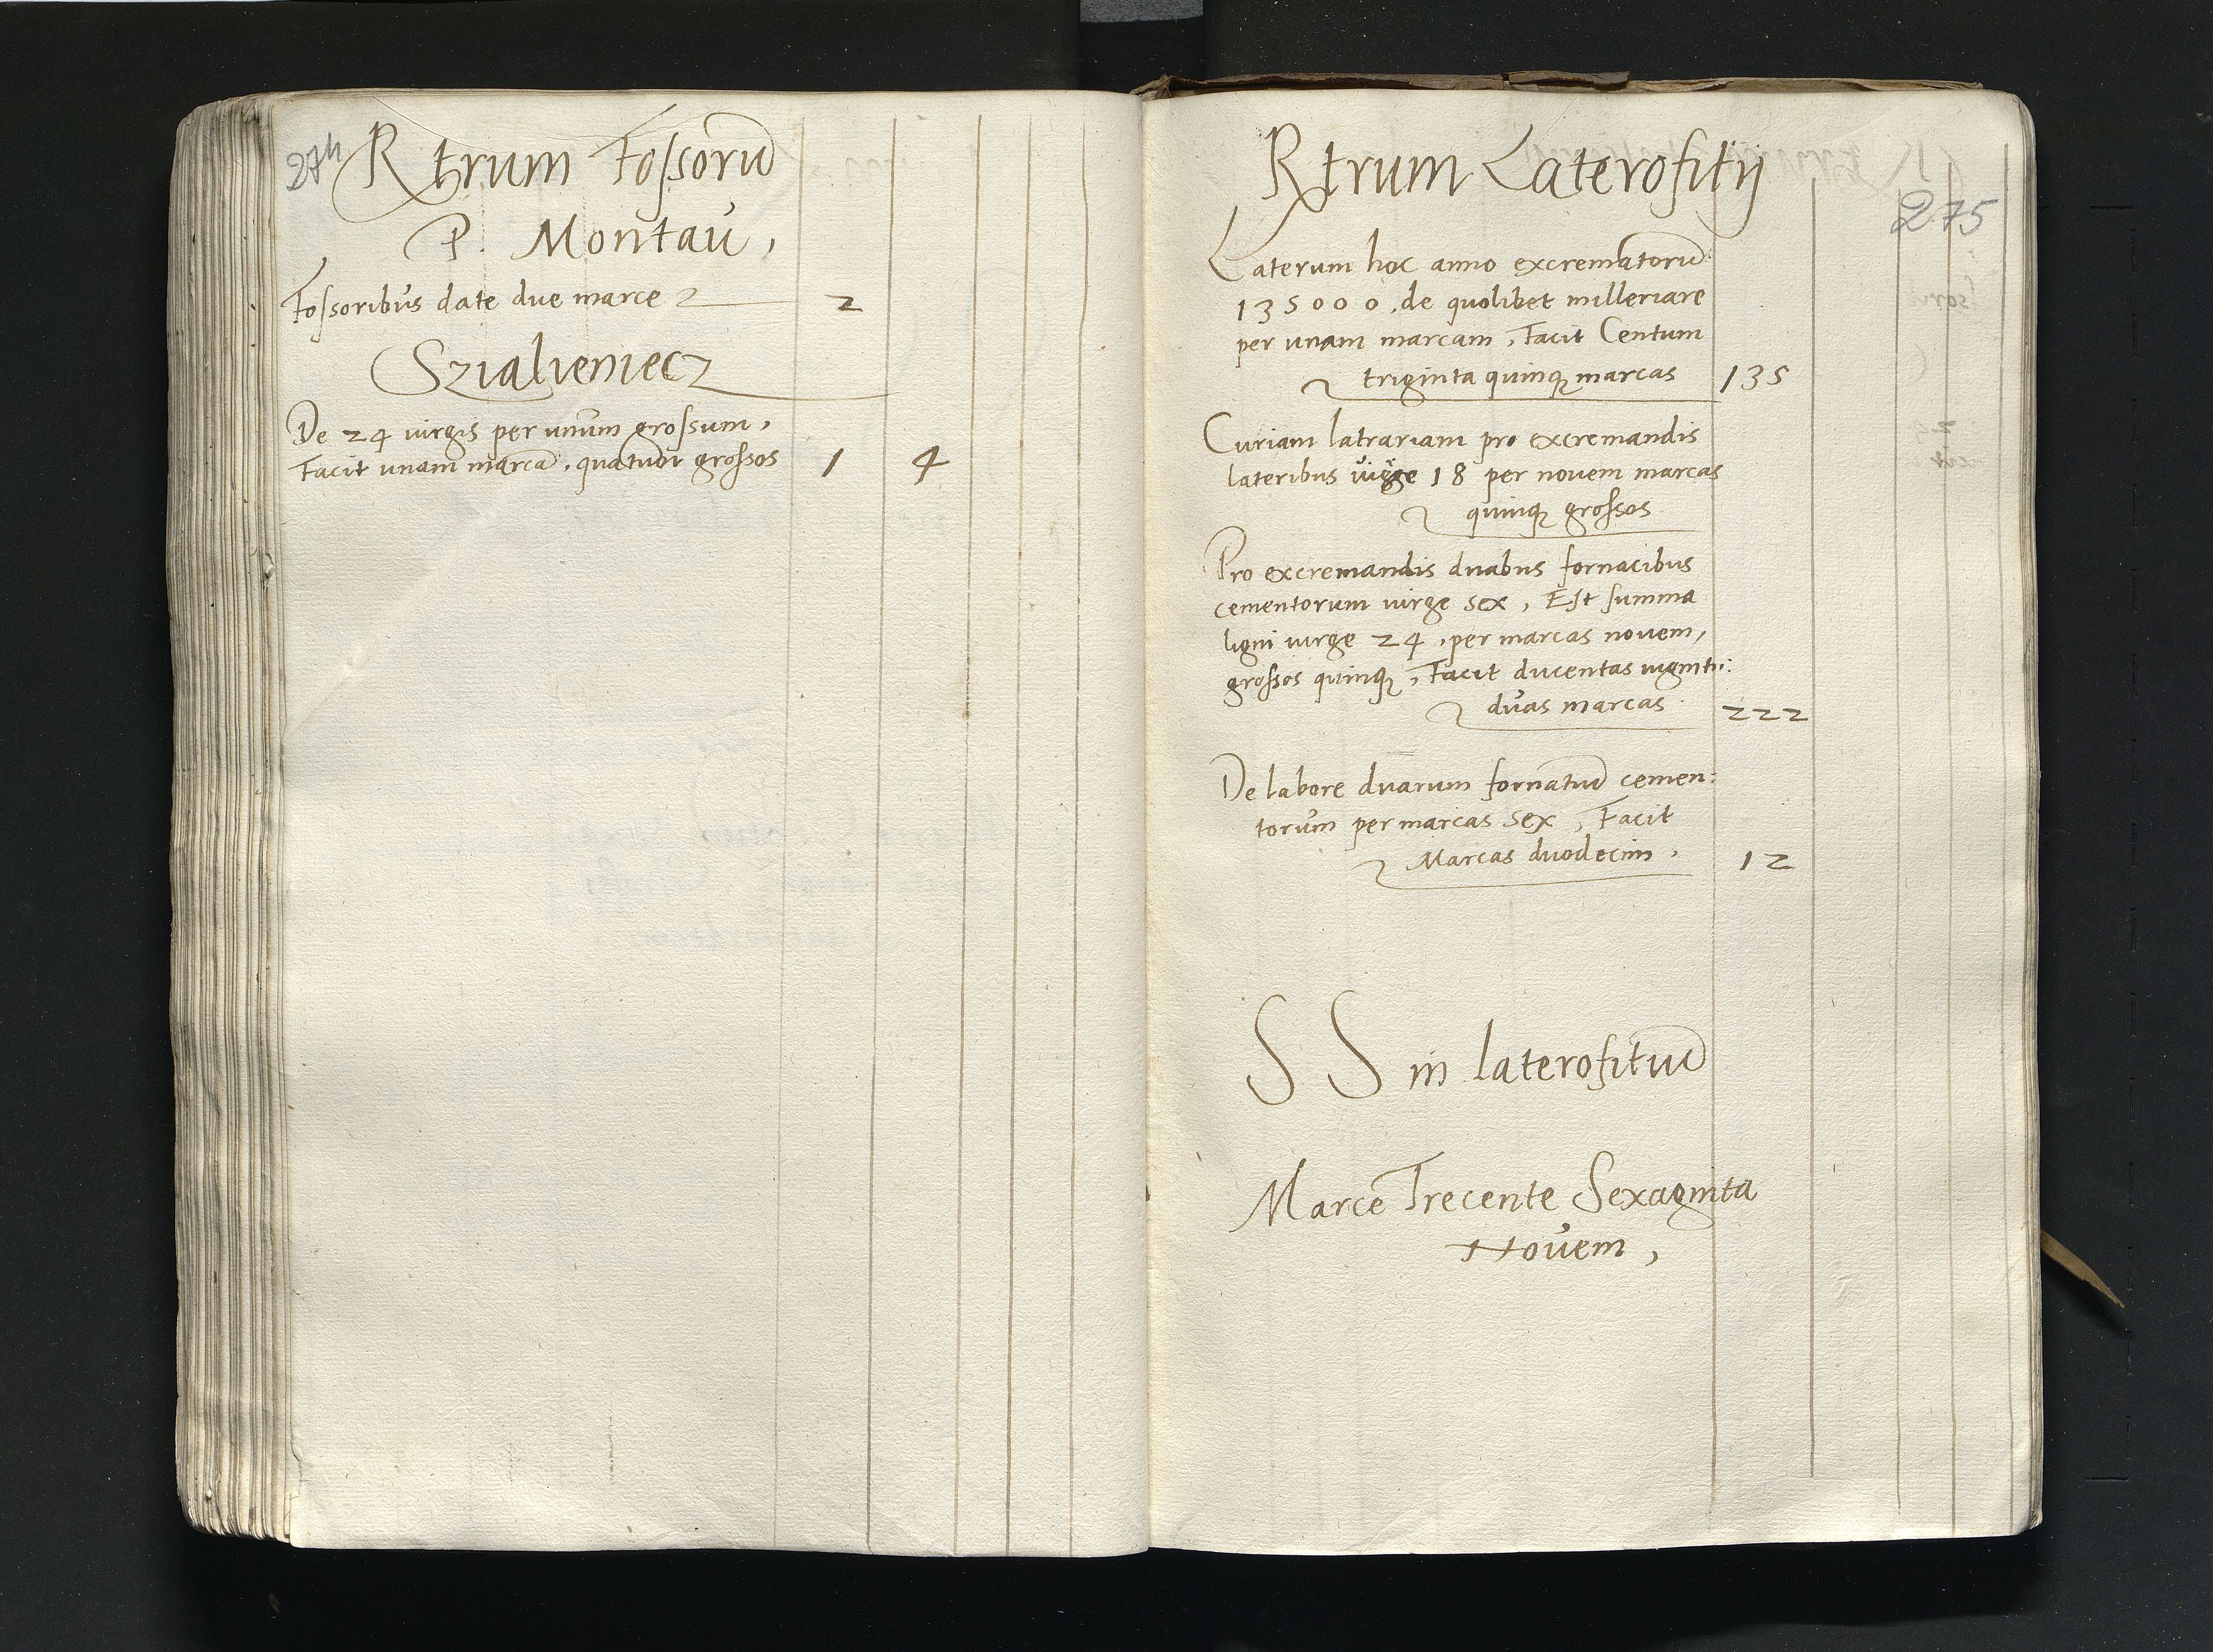 274
Rtrum Fossorũ
P. Montau,
Fossoribus date due marce 2
Szialieniecz
De 24 virgis per unum grossum,
Facit unam marcã, quatuor grossos 1 4
275
Rtrum Laterofitij
Laterum hoc anno excrematorũ
135000, de quolibet milleriare
per unam marcam, Facit Centum
triginta quinq marcas 135
Curiam latrariam pro excremandis
lateribus virge 18 per novem marcas
quinq grossos
Pro excremandis duabus fornacibus
cementorum virge sex, Est summa
ligni virge 24, per marcas novem,
grossos quinq, Facit ducentas viginti:
duas marcas 222
De labore duarum fornatuũ cemen:
torum per marcas sex, Facit
Marcas duodecim, 12
S S in laterofituũ
Marce Trecente Sexaginta
Novem,